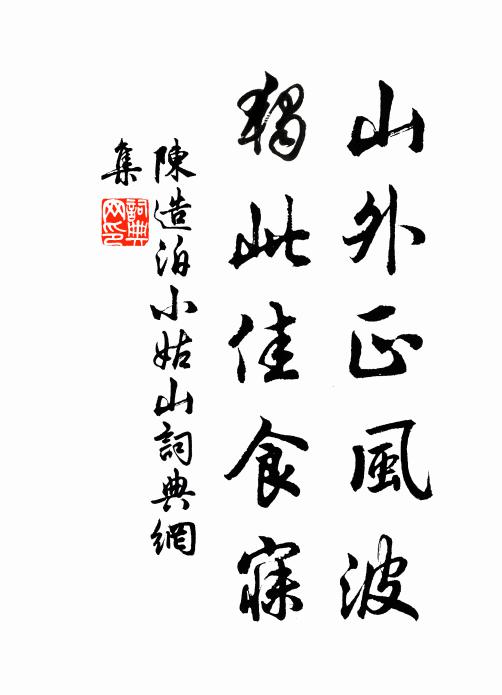 山外正風波
獨此佳食寐
陳造泊小姑山詞典網
集
詞典网印